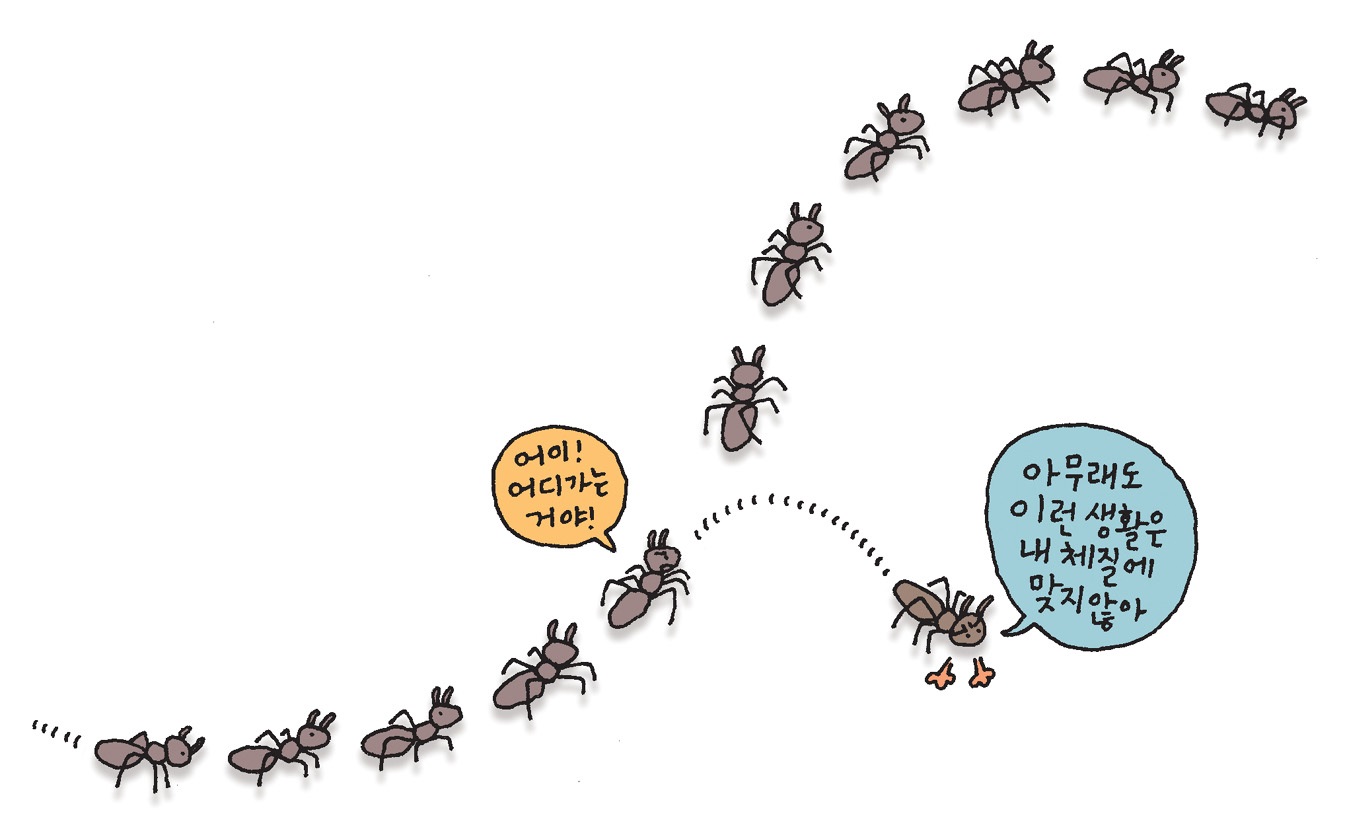 어이!
어디가는
거야!
아무래도
이런 생활은
내 체질에
맞지않아